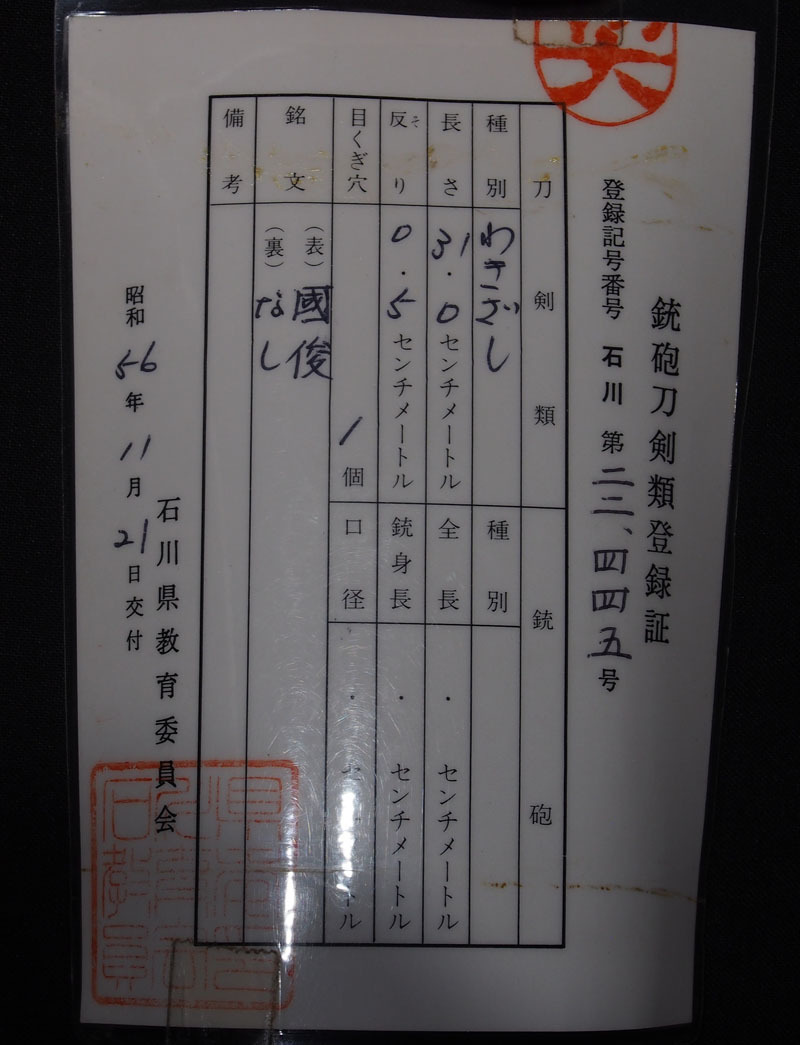 銃砲刀剣類登録証
登録記号番号 石川 第二二、四四五号
刀剣類
種別 わきざし
長さ 31.0センチメートル
反り そ 0.5センチメートル
目くぎ穴 1個
銘文 (表) 國俊
(裏) なし
備考
銃砲
種別
全長 ・ センチメートル
銃身長 ・ センチメートル
口径 ・ センチメートル
昭和56年11月21日交付
石川県教育委員会